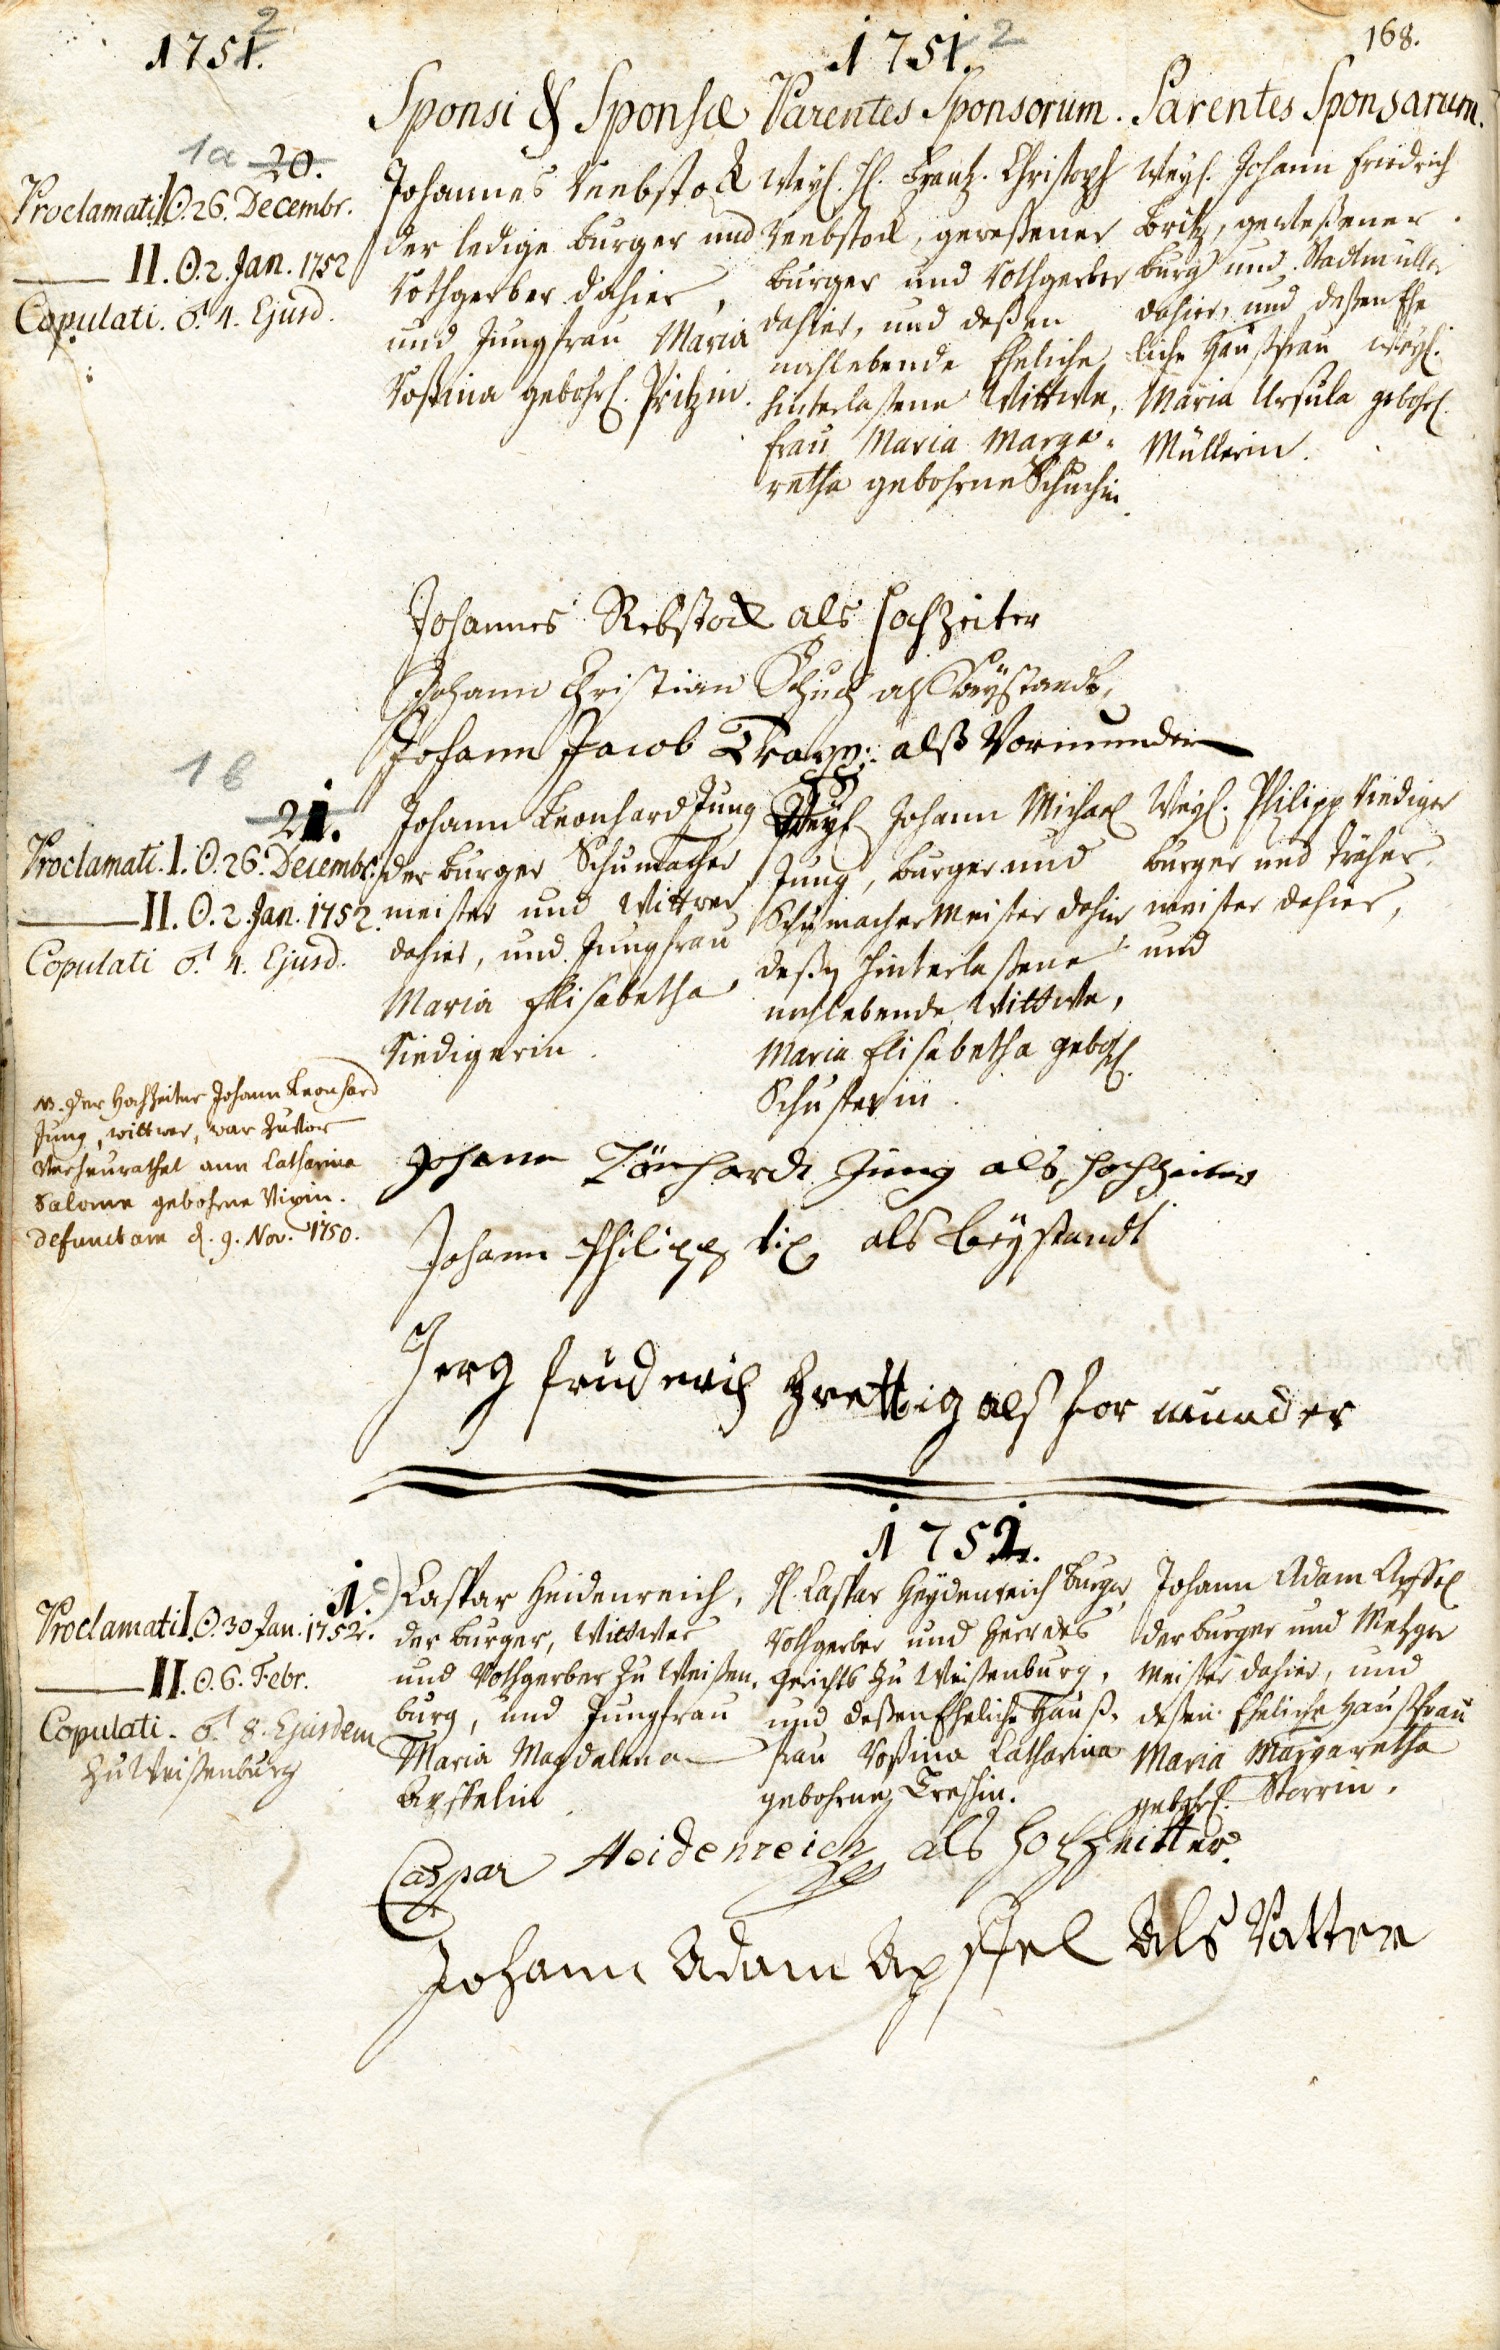 1751. 2
1751. 2
168.
Sponsi & Sponsæ
Parentes Sponsorum.
Parentes Sponsarum.
1a 20.
Proclamati I. ☉. 26. Decembr.
II. ☉. 2. Jan. 1752
Copulati. ♂. 4. Ejusd.
Johannes Reebstock
der ledige burger und
Rothgerber dahier,
und Jungfrau Maria
Rosina gebohrl. Pritzin.
Weyl. H. Frantz Christoph
Reebstock, geweßener
burger und Rothgerber
dahier, und deßen
nachlebende Eheliche
hinterlaßene Wittwe,
Frau Maria Marga-
retha gebohrne Schuchin
Weyl. Johann Friedrich
Britz, geweßener
burger und Stadtmüller
dahier, und deßen Ehe
liche Haußfrau Weyl.
Maria Ursula gebohrl.
Müllerin.
Johannes Rebstock als hochzeiter
Johann Christian Schuch als Beystandt,
Johann Jacob Trapp: alß Vormunder
1b
21.
Proclamati. I. ☉. 26. Decembr.
II. ☉. 2. Jan. 1752.
Copulati ♂. 4. Ejusd.
Johann Leonhard Jung
der burger Schumacher
meister und Wittwer
dahier, und Jungfrau
Maria Elisabetha
Riedigerin.
Weyl. Johann Michael
Jung, burger und
Schumacher Meister dahier
deßen hinterlaßene
nachlebende Wittwe,
Maria Elisabetha gebohrl.
Schusterin.
Weyl. Philipp Riediger
burger und
meister dahier,
und
NB. Der Hochzeiter Johann Leonhard
Jung, wittwer, war zuvor
verheurathet ann Catharina
Salome gebohrne Nixin.
defunctam d. 9. Nov. 1750.
Johann Lönhardt Jung als hochzeiter
Johann Philipp als beystandt
Jerg friderich als for munder
1752.
1.
Proclamati I. ☉. 30 Jan. 1752.
II. ☉. 6. Febr.
Copulati. ♂. 8. Ejusdem
zu Weißenburg
Caspar Heidenreich,
der burger, Wittwer
und Rothgerber zu Weißen-
burg, und Jungfrau
Maria Magdalena
Apffelin
H. Caspar Heydenreich burger,
Rothgerber und Herr des
Gerichts zu Weißenburg,
und deßen Eheliche Hauß-
frau Roßina Catharina
gebohrne
Johann Adam Apffel
der burger und Metzger
Meister dahier, und
deßen Eheliche Haußfrau
Maria Margaretha
gebohrl. Storrin.
Caspar Heidenreich als hochzeitter.
Johann Adam Apffel Als Vatter